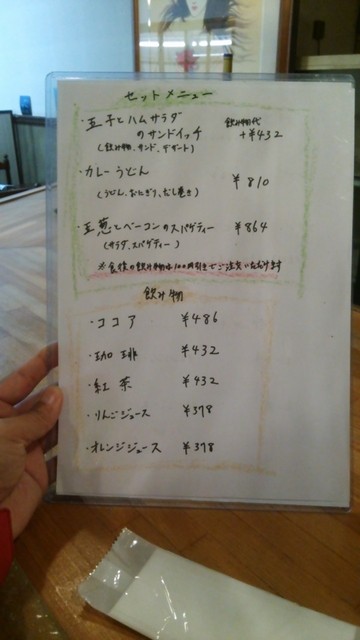 セットメニュー
・玉子とハムサラダ
のサンドイッチ
飲み物代
+¥432
(飲み物、サンド、デザート)
・カレーうどん ¥810
(うどん、おにぎり、だし巻き)
・玉葱とベーコンのスパゲティー ¥864
(サラダ、スパゲティー)
※食後の飲み物は100円引きでご注文いただけます
飲み物
・ココア ¥486
・珈琲 ¥432
・紅茶 ¥432
・りんごジュース ¥378
・オレンジジュース ¥378